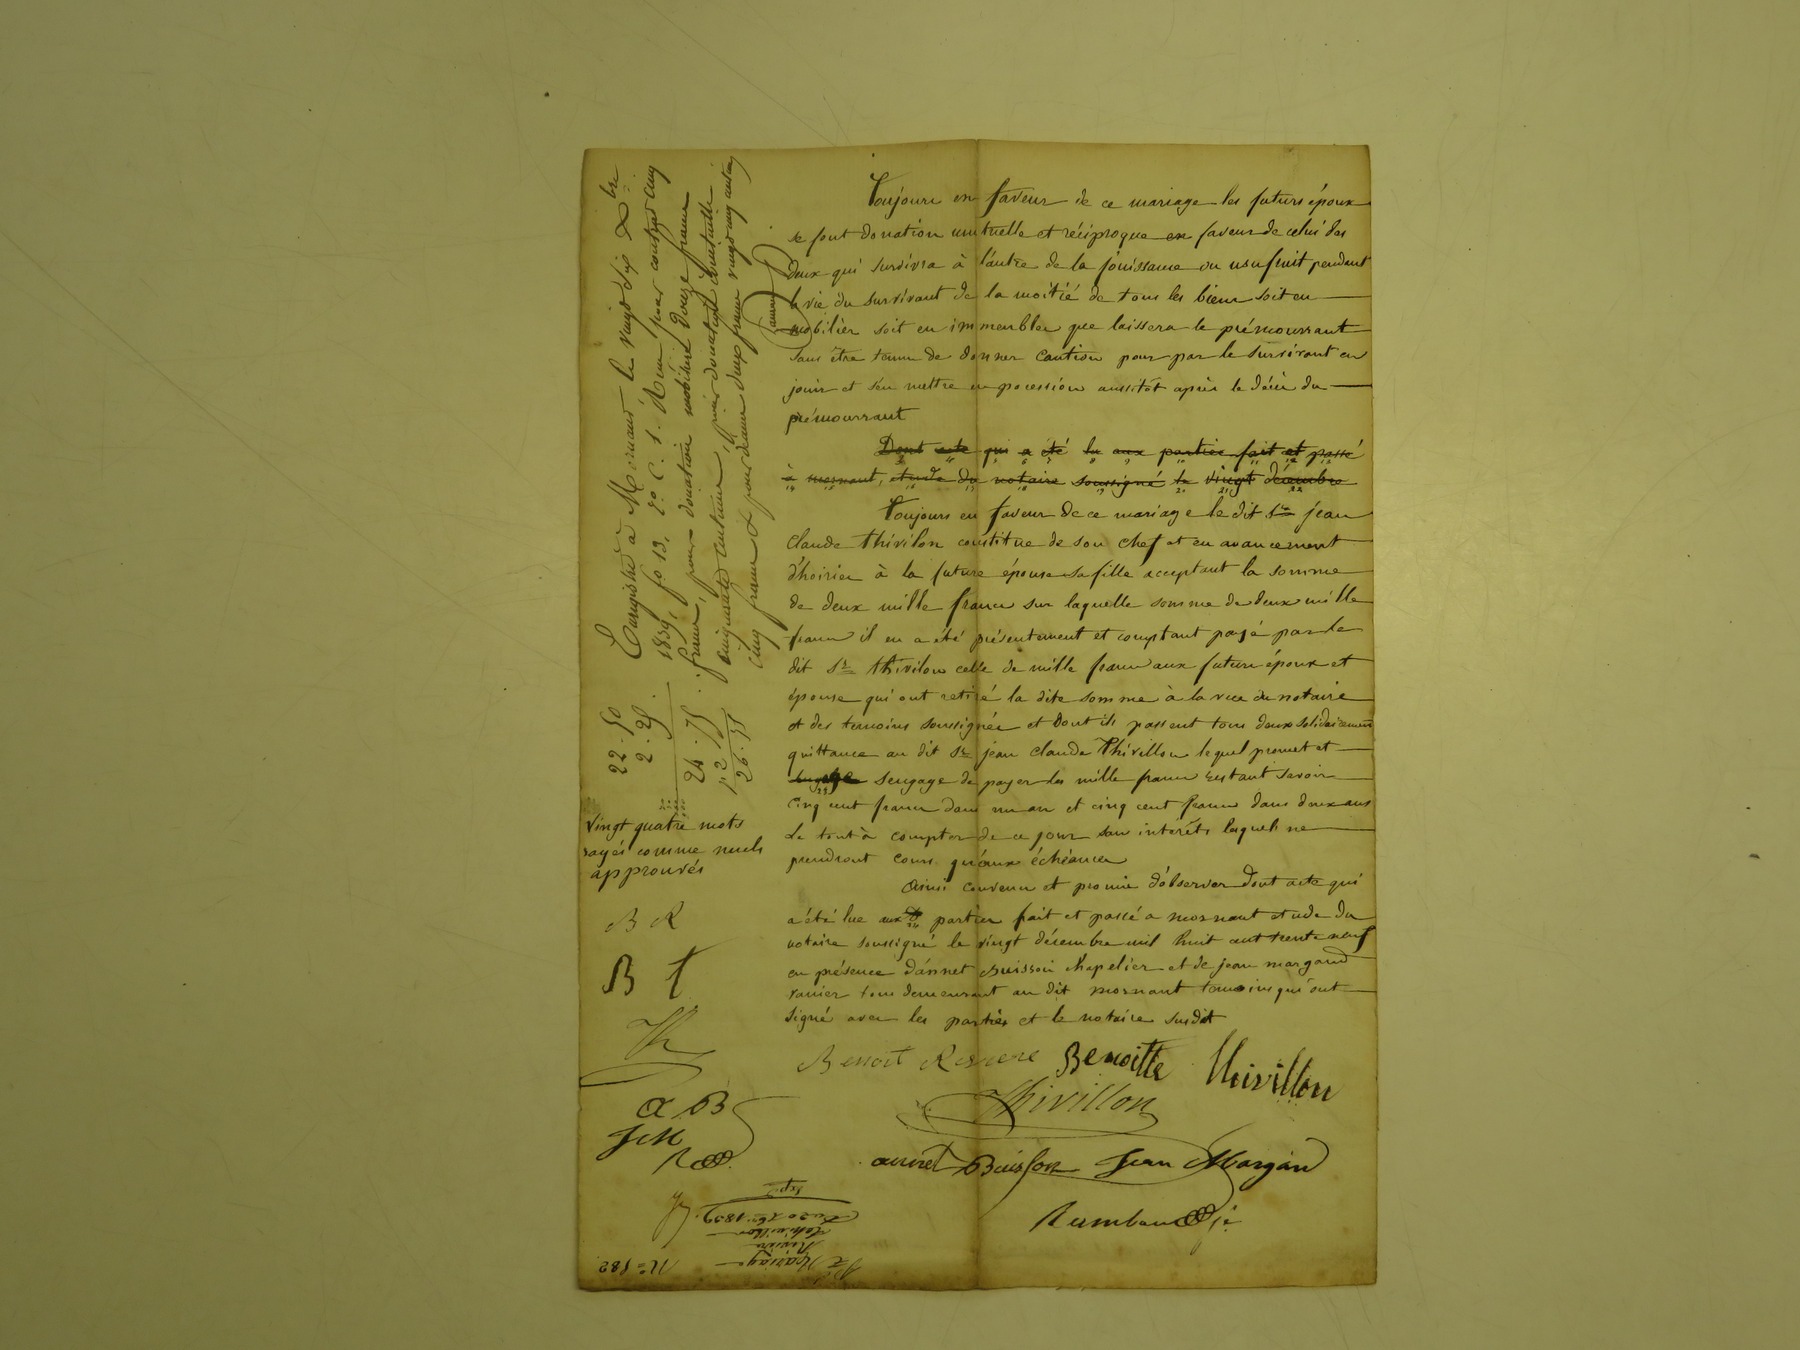 Toujours en faveur de ce mariage les futurs époux
se font donation mutuelle et réciproque en faveur de celui des
deux qui survivra à l'autre de la jouissance ou usufruit pendant
la vie du survivant de la moitié de tous les biens soit en
mobilier soit en immeubles que laissera le prémourrant
sans être tenu de donner caution pour par le survivant en
jouir et s'en mettre en pocession aussitôt après le décès du
prémourrant
Dont acte qui a été lu aux parties fait et passé
à mornant, etude du notaire soussigné le vingt décembre
Toujours en faveur de ce mariage le dit sr jean
Claude thivilon constitue de son chef et en avancement
d'hoirie à la future épouse sa fille acceptant la somme
de deux mille francs sur laquelle somme de deux mille
francs il en a été présentement et comptant payé par le
dit sr thivilon celle de mille francs aux futurs époux et
épouse qui ont retiré la dite somme à la vue du notaire
et des temoins soussignés et dont ils passent tous deux solidairement
quittance au dit sr jean Claude Thivillon lequel promet et
engage sengage de payer les mille francs restant savoir
cinq cent francs dans un an et cinq cent francs dans deux ans
le tout à compter de ce jour sans intérêts lesquels ne
prendront cours qu'aux échéances
Ainsi convenu et promis d'observer dont acte qui
a été lue aux parties fait et passé a mornant etude du
notaire soussigné le vingt décembre mil huit cent trente neuf
en présence d'annet Buisson chapelier et de jean margand
tous demeurant au dit mornant temoins qui ont
signé avec les parties et le notaire susdit
Benoit Riviere Benoitte Thivillon
Thivillon
annet Buisson Jean Margand
Rambaud je
Enregistré à Mornant, le vingt six Xbre
1839 fo 13, Ro C. 1. Reçu pour contrat cinq
francs, pour donation mobilière douze francs
cinquante centimes, pour donation mutuelle
cinq francs & pour dixième deux francs vingt cinq centimes
22.50
2.25
24.75
26.
Vingt quatre mots
rayés comme nuls
approuvés
B R
B t
Th
A B
J M
R
No 582
Mariage
Rivière
Thivillon
Du 20 Xbre 1839
Expée